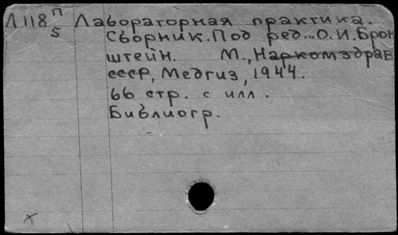 Л118 П/5 Лабораторная практика.
Сборник. Под ред... О. И. Брон
штейн. М., Наркомздрав
СССР, Медгиз, 1944.
66 стр. с илл.
Библиогр.
x